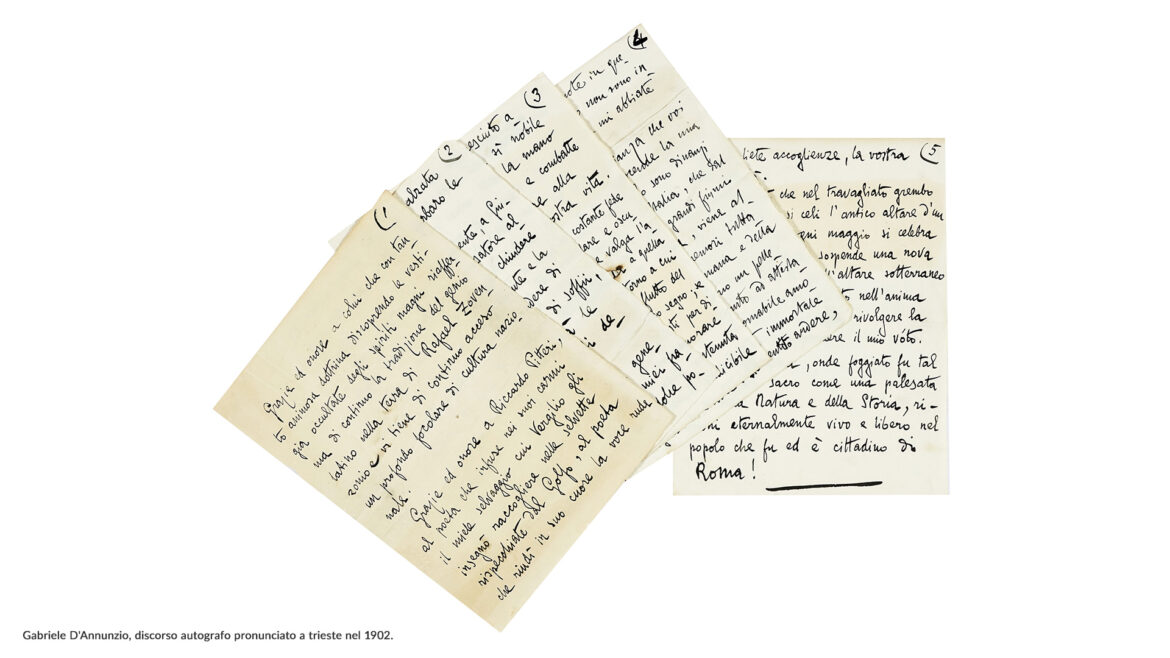 (1
Grazie ed onore a colui che con tan-
to animosa dottrina discoprendo le vesti-
gia occultate degli spiriti magni riaffer-
ma di continuo la tradizione del genio
latino nella terra di Rafael Zoven-
zonio e vi tiene di continuo acceso
un profondo focolare di cultura nazio-
nale.
Grazie ed onore a Riccardo Pitteri,
al poeta che infuse nei suoi carmi
il miele selvaggio cui Vergilio gli
insegnò raccogliere nelle selvette
rispecchiate dal Golfo, al poeta
che in suo cuore la voce
(2
barbaro le
a Giu-
satore al
chiudere
e la
di
di soffii,
le
de-
rude
(3
esciuto a
sì nobile
la mano
e combatte
alla
ostra vita.
costante fede
lare e oscu
e valga l'a
a a quella
orno a cui
flutto del
segno; se
per di
morare
ostenuta
dicibile
(4
in que-
non sono in
mi abbiate
anza che voi
accende la mia
sono dinanzi
talia, che dal
grandi fiumi
, viene al
memori tutta
mana e della
un pelle
ad attesta
domabile amo-
immortale
ardere,
(5
liete accoglienze, la vostra
che nel travagliato grembo
si celi l'antico altare d'un
ogni maggio si celebra
sospende una nova
l'altare sotterraneo
nell'anima
rivolgere la
ere il mio vóto.
, onde foggiato fu tal
sacro come una palesata
Natura e della Storia, ri-
eternalmente vivo e libero nel
popolo che fu ed è cittadino di
Roma!
Gabriele D'Annunzio, discorso autografo pronunciato a trieste nel 1902.